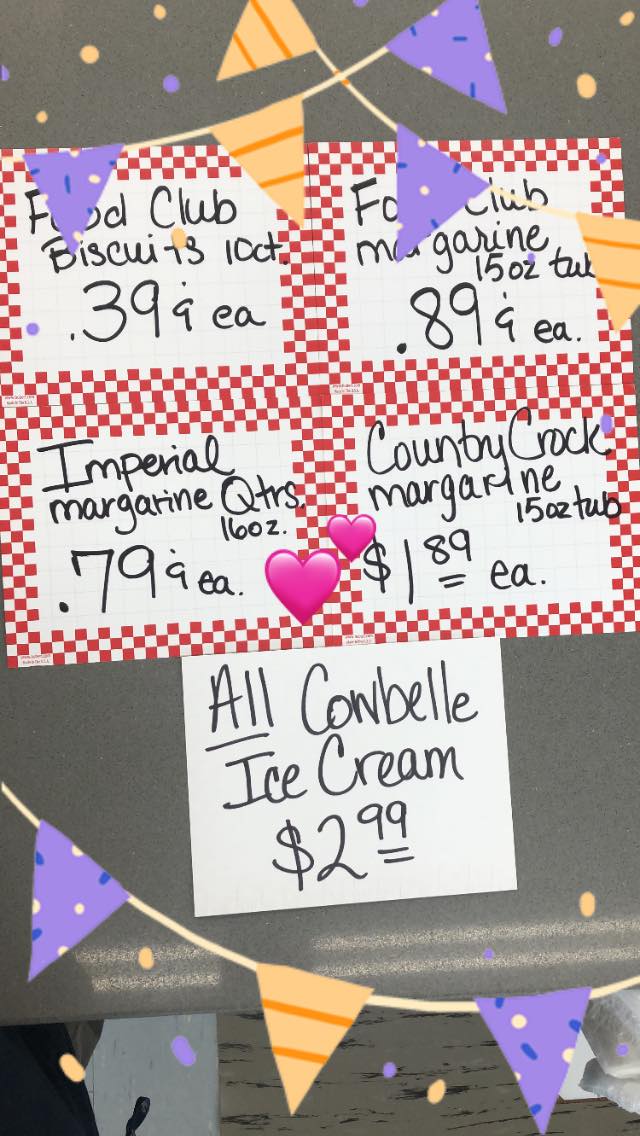 Food Club
Biscuits 10ct.
.39¢ ea
Food Club
margarine
15oz tub
.89¢ ea.
Imperial
margarine Qtrs.
16oz.
.79¢ ea.
Country Crock
margarine
15oz tub
$1 89 ea.
All Cowbelle
Ice Cream
$2 99